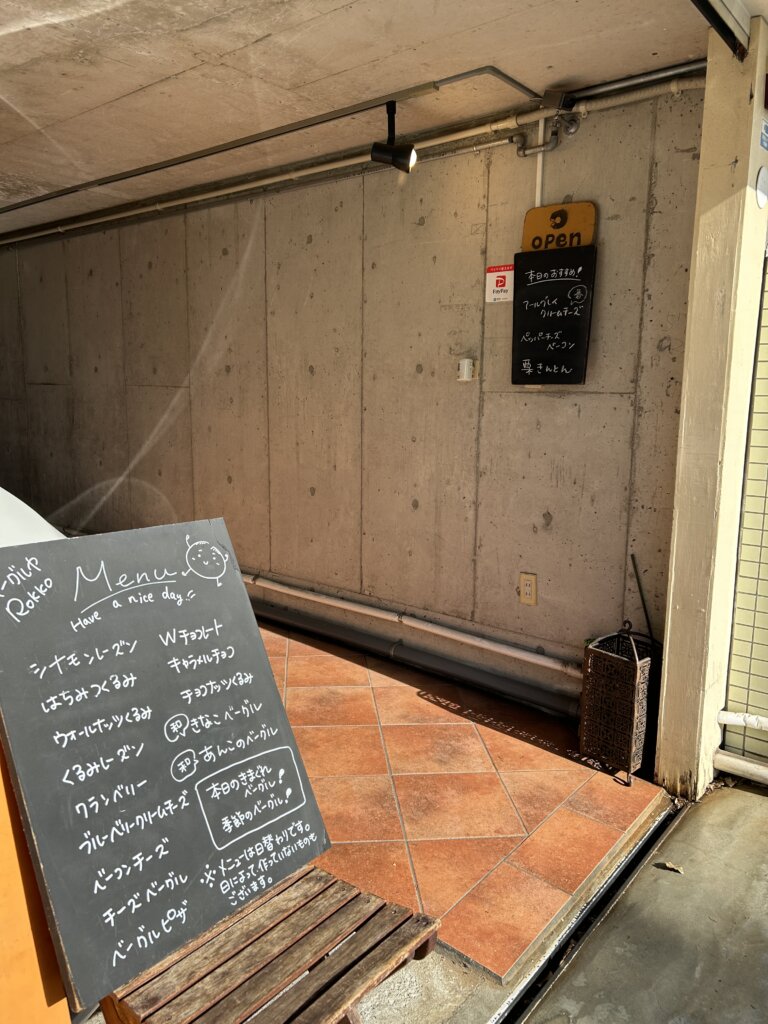 open
本日のおすすめ!
アールグレイ
クリームチーズ
ペッパーチーズ
ベーコン
栗きんとん
PayPay
ベーグルや
Rokko
Menu
Have a nice day!!
シナモンレーズン
はちみつくるみ
ウォールナッツくるみ
くるみレーズン
クランベリー
ブルーベリークリームチーズ
ベーコンチーズ
チーズベーグル
ベーグルピザ
Wチョコレート
キャラメルチョコ
チョコナッツくるみ
和 きなこベーグル
和 あんこのベーグル
本日のきまぐれ
ベーグル!
季節のベーグル!
※メニューは日替わりです。
日によって作っていないものも
ございます。